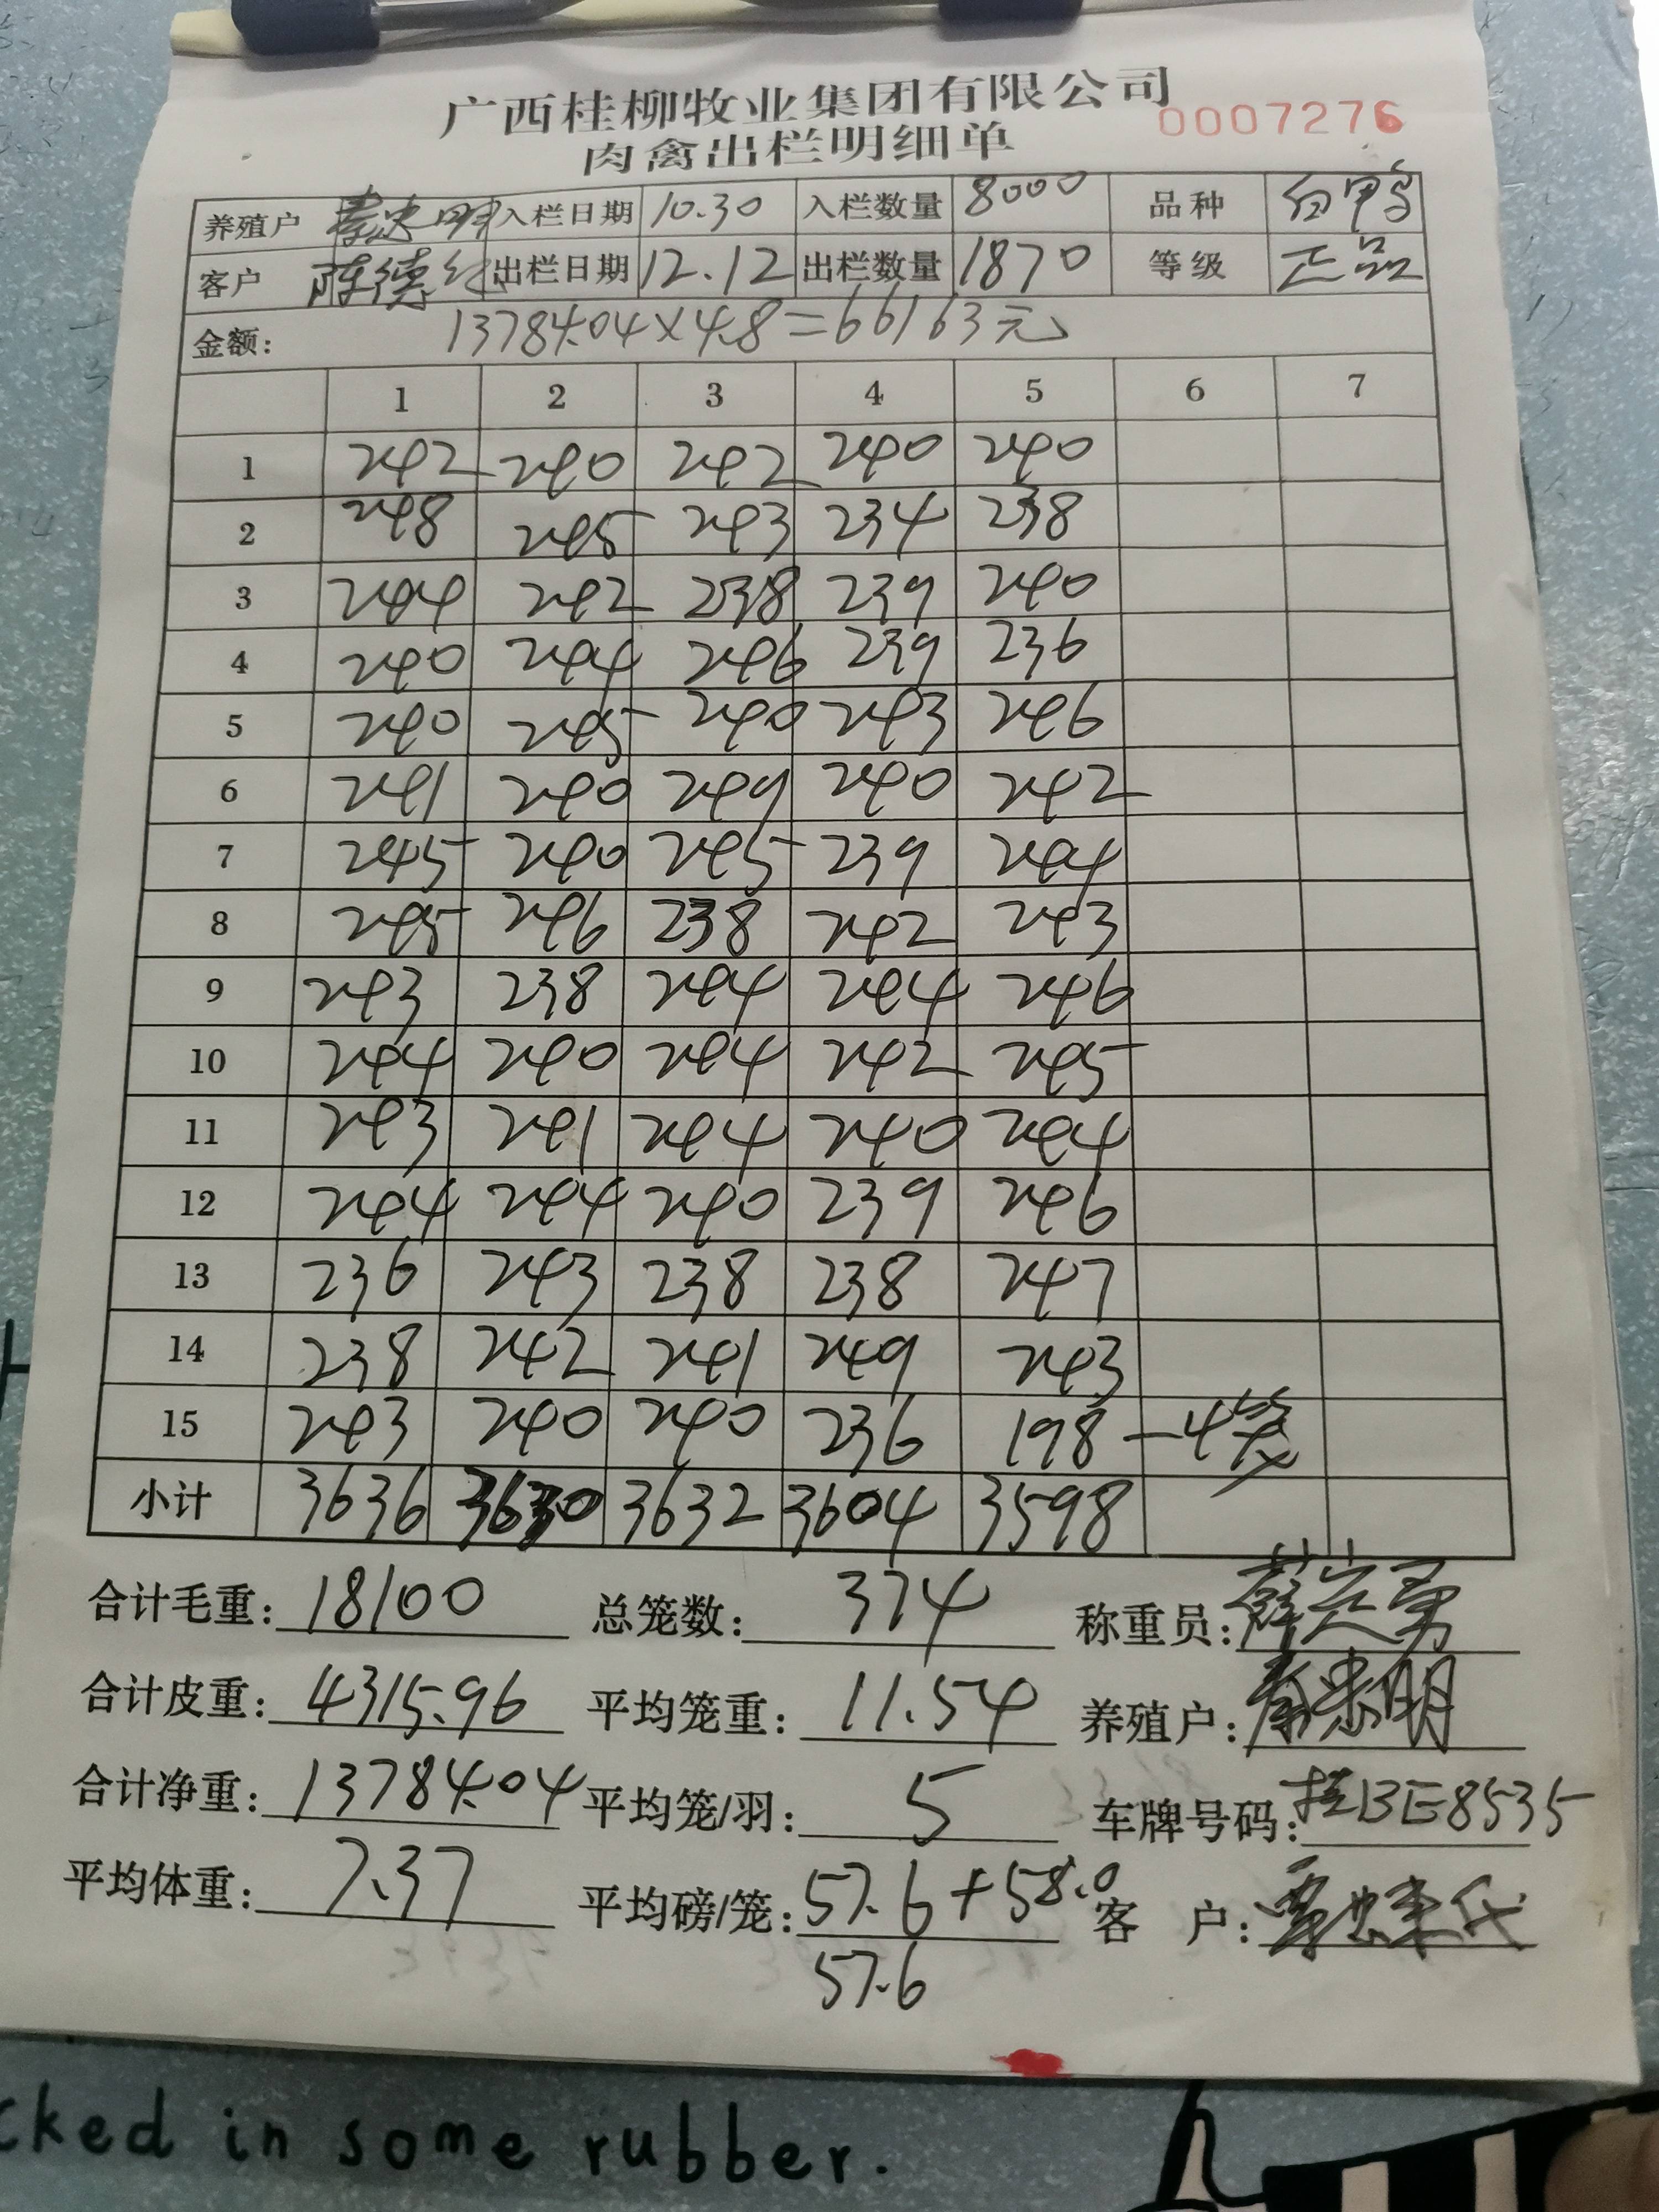 广西桂柳牧业集团有限公司
0007276
肉禽出栏明细单
养殖户 入栏日期 10.30 入栏数量 8000 品种 白鸭
客户 陈德 出栏日期 12.12 出栏数量 1870 等级 正品
金额: 13784.04×4.8=66163元
1 2 3 4 5 6 7
1 242 240 242 240 240
2 248 245 243 234 238
3 244 242 238 239 240
4 240 244 246 239 236
5 240 245 240 243 246
6 241 240 249 240 242
7 245 240 245 239 244
8 245 246 238 242 243
9 243 238 244 244 246
10 244 240 244 242 245
11 243 241 244 240 244
12 244 244 240 239 246
13 236 243 238 238 247
14 238 242 241 249 243
15 243 240 240 236 198 —4
小计 3636 3630 3632 3604 3598
合计毛重: 18100 总笼数: 374 称重员:
合计皮重: 4315.96 平均笼重: 11.54 养殖户:
合计净重: 13784.04 平均笼/羽: 5 车牌号码: 桂BE8535
平均体重: 7.37 平均磅/笼: 57.6+58.0 客 户:
57.6
cked in some rubber.